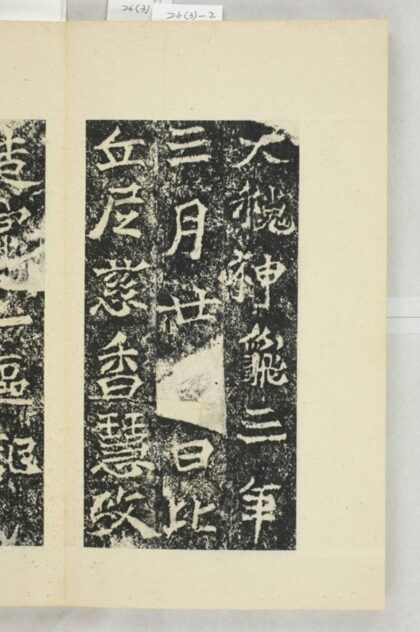 26(3)
26(3)-2
大魏神龜三年
三月廿日比
丘尼慈香慧政
造窟一區記